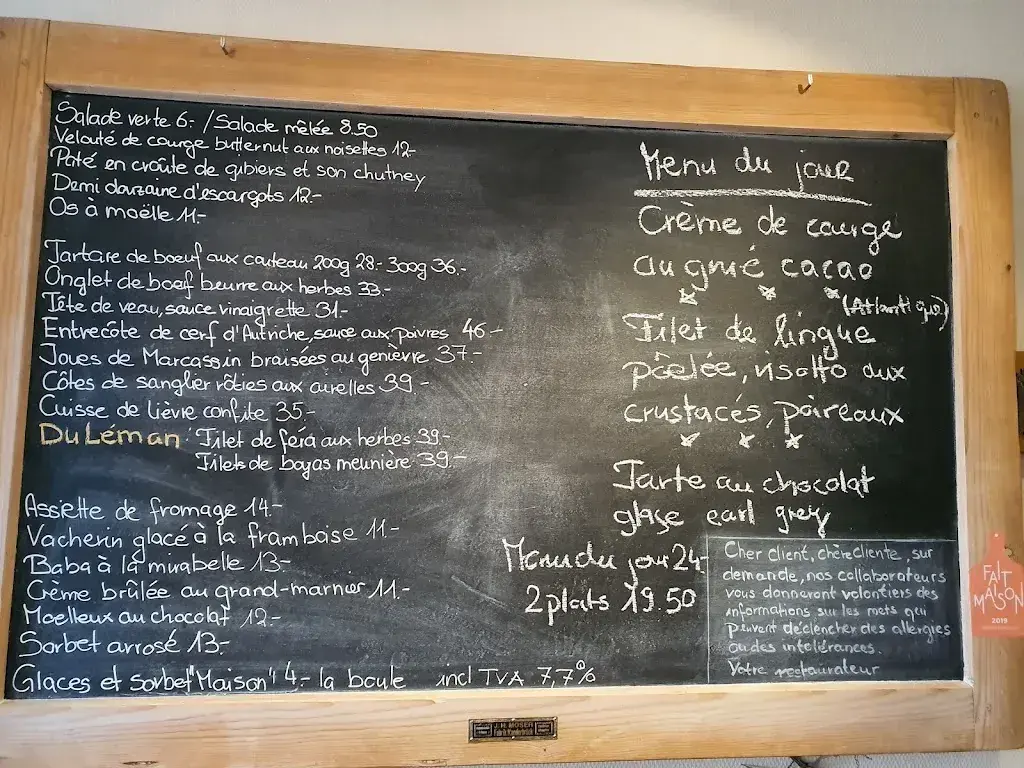 Salade verte 6.- / Salade mêlée 8.50
Velouté de courge butternut aux noisettes 12.-
Pâté en croûte de gibiers et son chutney
Demi douzaine d'escargots 12.-
Os à moëlle 11.-
Tartare de boeuf aux couteau 200g 28.- 300g 36.-
Onglet de boef beurre aux herbes 33.-
Tête de veau, sauce vinaigrette 31.-
Entrecôte de cerf d'Autriche, sauce aux poivres 46.-
Joues de Marcassin braisées au genièvre 37.-
Côtes de sanglier rôties aux airelles 39.-
Cuisse de lièvre confite 35.-
Du Léman Filet de féra aux herbes 39.-
Filets de boyas meunière 39.-
Assiette de fromage 14.-
Vacherin glacé à la framboise 11.-
Baba à la mirabelle 13.-
Crème brûlée au grand-marnier 11.-
Moelleux au chocolat 12.-
Sorbet arrosé 13.-
Glaces et Sorbet "Maison" 4.- la boule incl TVA 7,7%
Menu du jour
Crème de courge
au grué cacao
(Atlantique)
Filet de lingue
pôelée, risotto aux
crustacés, poireaux
Tarte au chocolat
glaçe earl grey
Menu du jour 24.-
2 plats 19.50
Cher client, chère cliente, sur
demande, nos collaborateurs
vous donneront volontiers des
informations sur les mets qui
peuvent déclencher des allergies
ou des intolérances.
Votre restaurateur
FAIT
MAISON
2019
J. H. MOSER